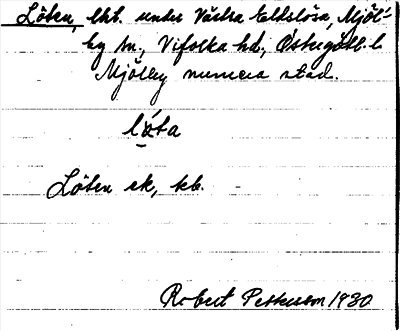 Löten, lht. under Västra Eldslösa, Mjöl-
by sn., Vifolka hd., Östergötl. l.
Mjölby numera stad.
lö́ta
Löten ek, kb.
Robert Pettersson 1930